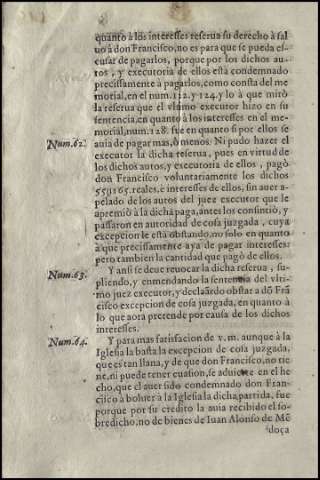 quanto à los interesses reserua su derecho à sal
uo à don Francisco, no es para que se pueda es-
cusar de pagarlos, porque por los dichos au-
tos, y executoria de ellos está condemnado
precissamente à pagarlos, como consta del me
morial, en el num. 122. y 124, y lo à que miró
la reserua que el vltimo executor hizo en su
sentencia, en quanto à los interesses en el me-
morial, num. 128. fue en quanto si por ellos se
Num. 62. auia de pagar mas, ò menos. Ni pudo hazer el
executor la dicha reserua, pues en virtud de
los dichos autos, y executoria de ellos, pagò
don Francisco voluntariamente los dichos
559165. reales, è interesses de ellos, sin auer a-
pelado de los autos del juez executor que le
apremiò à la dicha paga, antes los consintiò, y
passaron en autoridad de cosa juzgada, cuya
excepcion le está obstando, no solo en quanto
à que precissamente aya de pagar interesses:
pero tambien la cantidad que pagò de ellos.
Num. 63. Y ansi se deue reuocar la dicha reserua, su-
pliendo, y enmendando la sentencia del vlti-
mo juez executor, y declarãdo obstar a dõ Frã
cisco excepcion de cosa juzgada, en quanto à
lo que aora pretende por causa de los dichos
interesses.
Num. 64. Y para mas satisfacion de v. m. aunque à la
Iglesia la basta la excepcion de cosa juzgada,
que es tan llana, y de que don Francisco, no tie
ne, ni puede tener euasion, se aduierte en el he
cho, que el auer sido condemnado don Fran-
cisco à boluer à la Iglesia la dicha partida, fue
porque por su credito la auia recibido el so-
bredicho, no de bienes de Iuan Alonso de Mẽ
doça